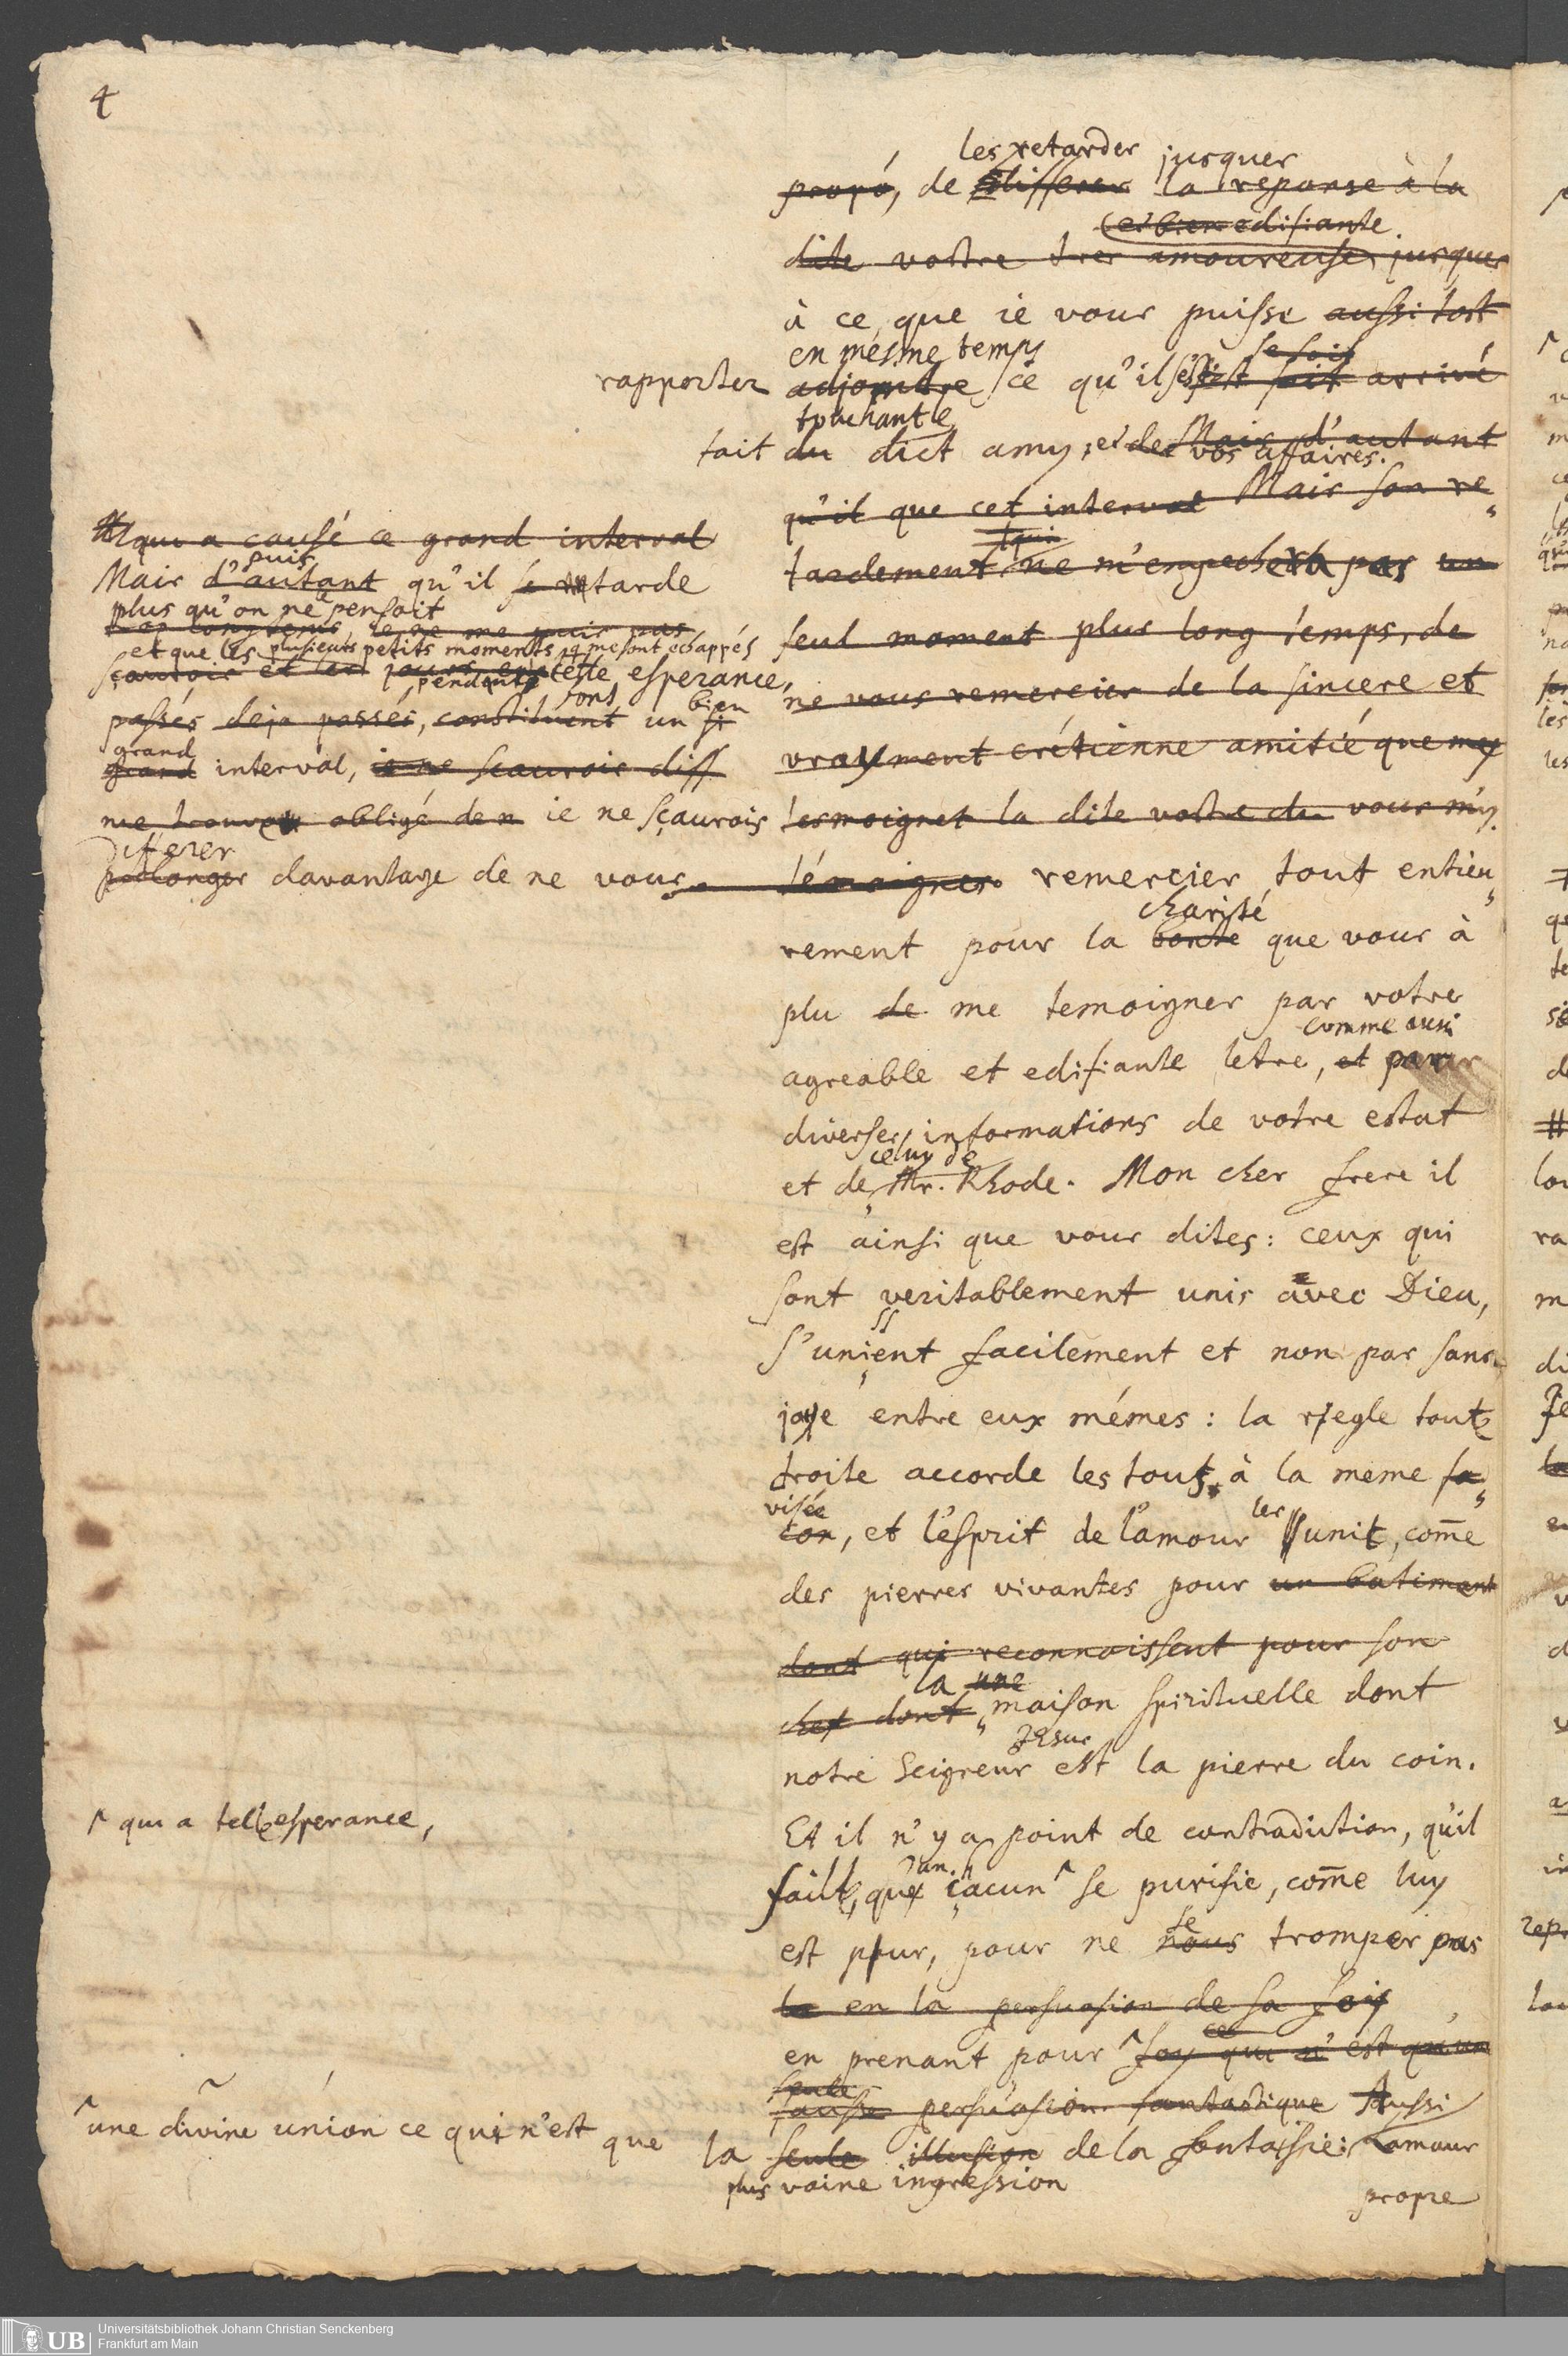 4
les retarder jusques
propó, de differer la reponse à la
et bien edifiante
dite vostre tres amoureuse jusques
à ce, que ie vous puisse aussi tost
en mésme temps se soit
rapporter adjoindre ce qu'il s'est soit arrivé
touchant le
fait du dict amy, et de Mais d'autant
vos affaires.
qu'il que cet interval Mais son re„
tardement ne m'empechera pas un
seul moment plus long temps, de
ne vous remercier de la sincere et
vrayment crétienne amitié que me
tesmoignet la dite vostre du vous m'y
témoignes remercier tout entieu„
charité
rement pour la bonté que vous à
plu de me temoigner par votre
comme aussi
agreable et edifiante letre, et par
diverses informations de votre estat
celuy de
et de Mr. Rhode. Mon cher frere il
est ainsi que vous dites: ceux qui
sont veritablement unis avec Dieu,
ss
s'unient facilement et non pas sans
joye entre eux mémes: la regle toute
droite accorde les tous à la meme fa„
visée les
con, et l'esprit de l'amour unit, com̄e
des pierres vivantes pour un batiment
dont qui reconnoissent pour son
la une
chef dont maison spirituelle dont
Jesus
notre Seigneur est la pierre du coin.
Et il n'y a point de contradiction, qu'il
faille, que çacun se purifie, com̄e luy
se
est pur, pour ne nous tromper pas
la en la persuasion de sa foiy
ces
en prenant pour foy qui n'est qu'un
seule
fausse persuasion fantastique Aussi
que la seule illusion de la fantaisie: L'amour
plus vaine ingression
propre
qui a causé ce grand interval
puis
Mais d'autant qu'il se retarde
plus qu'on ne pensoit
trop longtems, ie ne me puis pas
et que les plusieurs petits moments, q̃ me sont echappés
sçavoir et les jours en cette esperance,
pendant sont bien
passés deja passés, constituent un si
grand
grand interval, ie ne scaurois diff
me trouve obligé de n ie ne sçaurois
differer
prolonger davantage de ne vous
^ qui a telle esperance,
^ une divine únion ce qui n'est
Universitätsbibliothek Johann Christian Senckenberg
Frankfurt am Main
UB